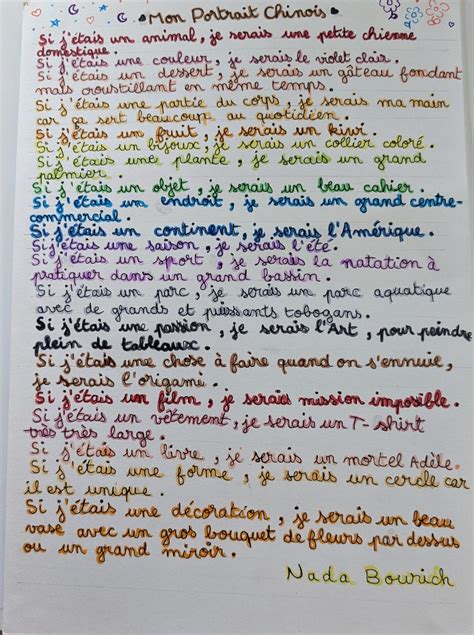 Mon Portrait Chinois
Si j'étais un animal, je serais une petite chienne
domestique.
Si j'étais une couleur, je serais le violet clair.
Si j'étais un dessert, je serais un gâteau fondant
mais croustillant en même temps.
Si j'étais une partie du corps, je serais ma main
car ça sert beaucoup au quotidien.
Si j'étais un fruit, je serais un kiwi.
Si j'étais un bijoux, je serais un collier coloré.
Si j'étais une plante, je serais un grand
palmier.
Si j'étais un objet, je serais un beau cahier.
Si j'étais un endroit, je serais un grand centre-
commercial.
Si j'étais un continent, je serais l'Amérique.
Si j'étais une saison, je serais l'été.
Si j'étais un sport, je serais la natation à
pratiquer dans un grand bassin.
Si j'étais un parc, je serais un parc aquatique
avec de grands et puissants tobogans.
Si j'étais une passion, je serais l'Art, pour peindre
plein de tableaux.
Si j'étais une chose à faire quand on s'ennuie,
je serais l'origami.
Si j'étais un film, je serais mission imposible.
Si j'étais un vêtement, je serais un T-shirt
très très large.
Si j'étais un livre, je serais un mortel Adèle.
Si j'étais une forme, je serais un cercle car
il est unique.
Si j'étais une décoration, je serais un beau
vase avec un gros bouquet de fleurs par dessus
ou un grand miroir.
Nada Bowrich